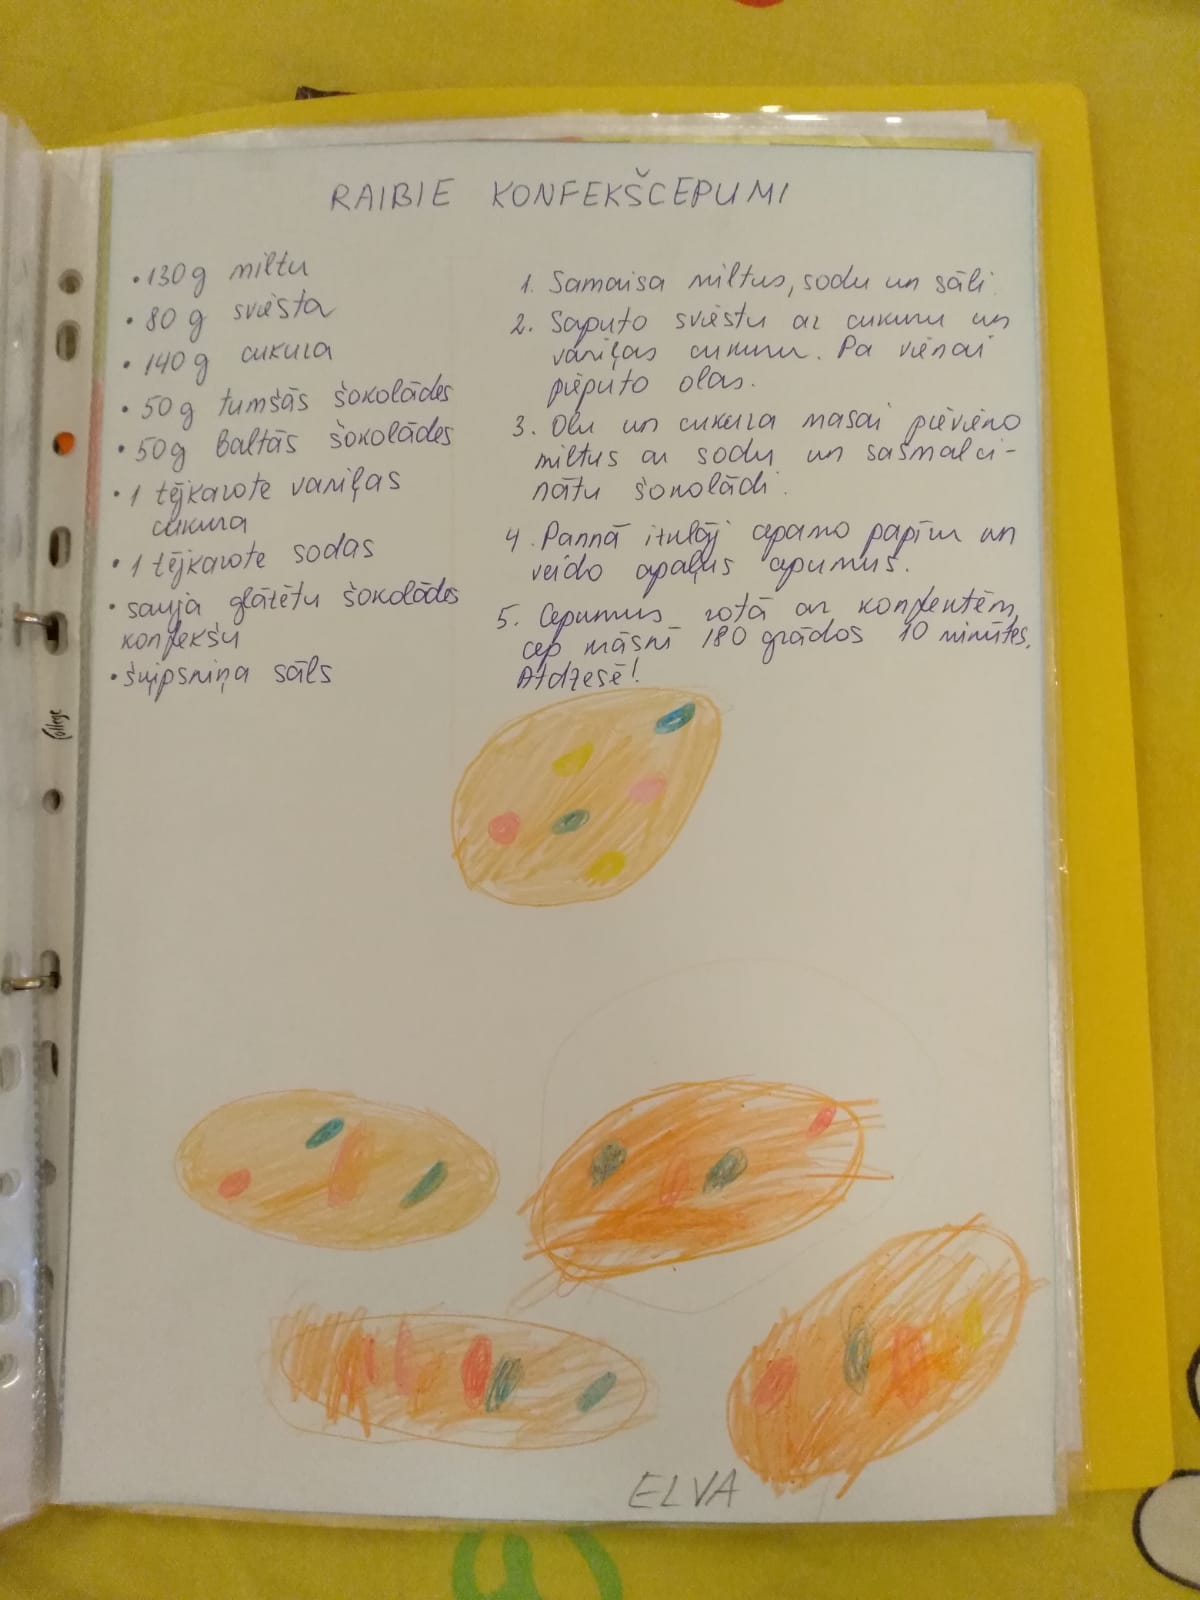 RAIBIE KONFEKŠCEPUMI
• 130g miltu
• 80 g sviesta
• 140g cukura
• 50g tumšās šokolādes
• 50g baltās šokolādes
• 1 tējkarote vaniļas
cukura
• 1 tējkarote sodas
• sauja glazētu šokolādes
konfekšu
• šķipsniņa sāls
1. Samaisa miltus, sodu un sāli.
2. Saputo sviestu ar cukuru un
vaniļas cukuru. Pa vienai
pieputo olas.
3. Olu un cukura masai pievieno
miltus ar sodu un sasmalci-
nātu šokolādi.
4. Pannā ieklāj cepamo papīru un
veido apaļus cepumus.
5. Cepumus rotā ar konfektēm,
cep krāsnī 180 grādos 10 minūtes.
Atdzesē!
College
ELVA